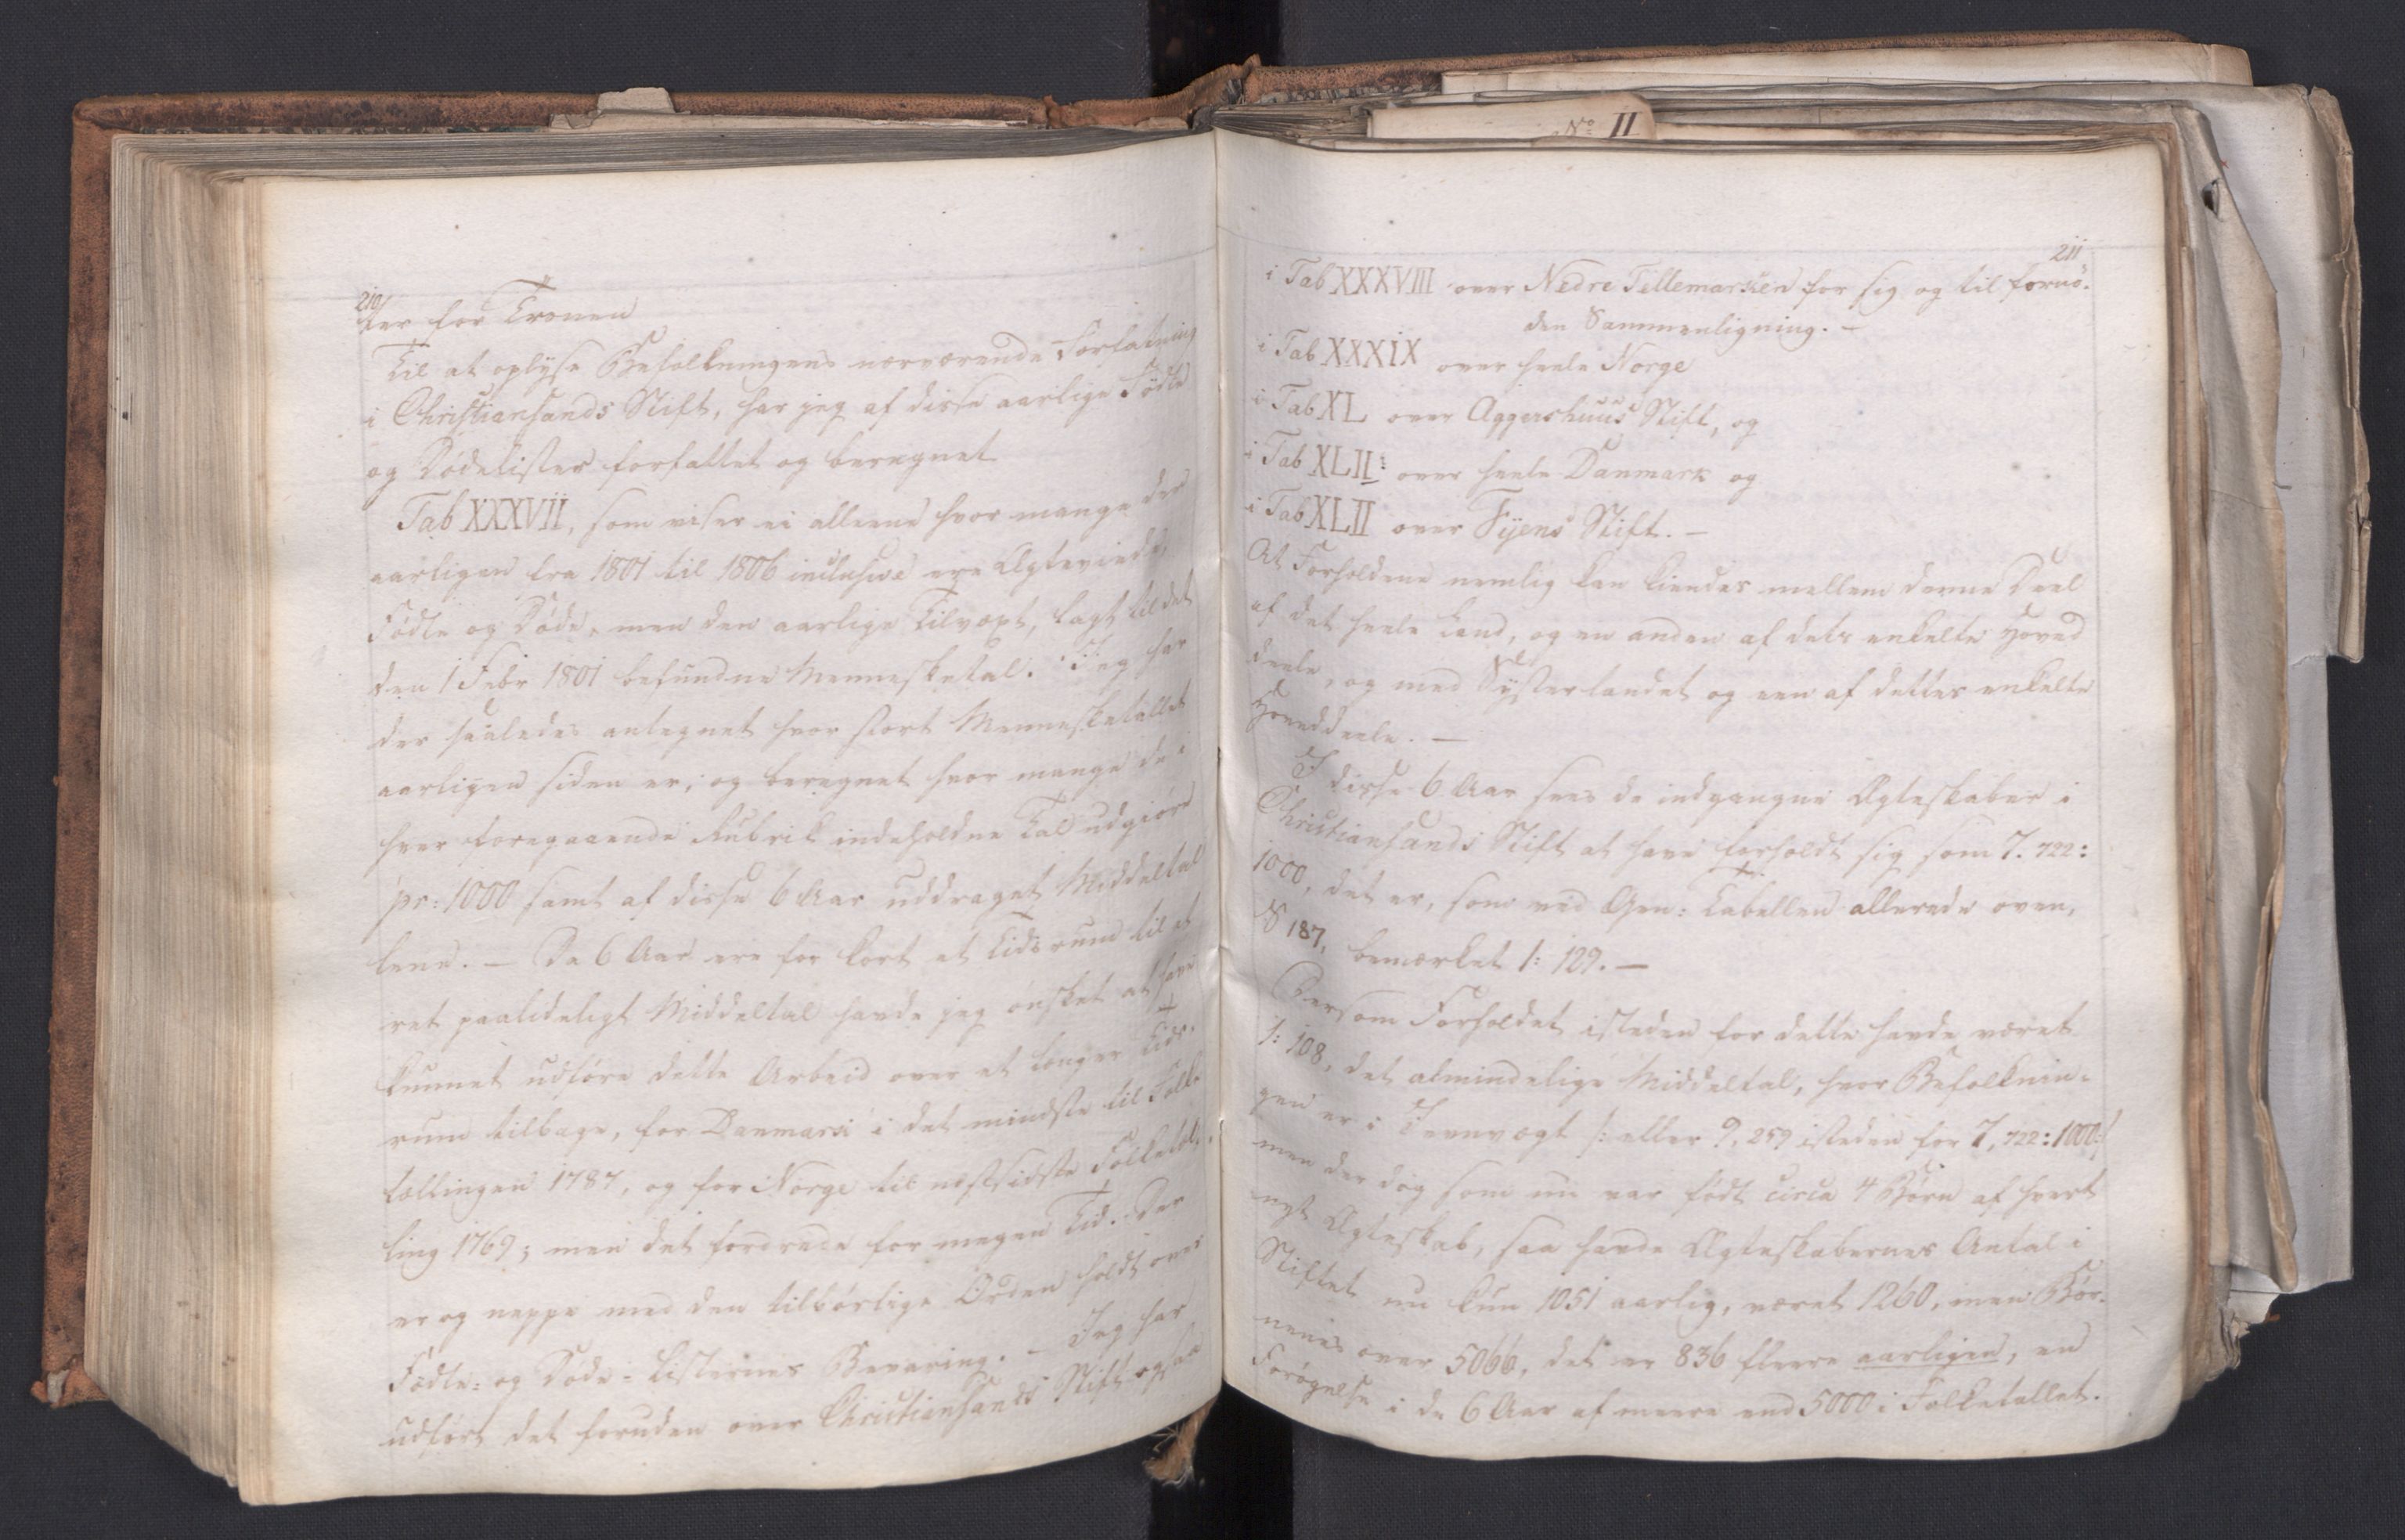 210
ter for Tronen
Til at oplyse Befolkningens nærværende Forfatning
i Christiansands Stift, har jeg af disse aarlige Födte
og Dødelister forfattet og beregnet
Tab XXXVII, som viser ei alleene hvor mange der
aarligen fra 1801 til 1806 inclusive ere Ægteviede,
Födte og Døde, men den aarlige Tilvæxt, lagt til det
den 1 Febr 1801 befundne Mennesketal. Jeg har
der saaledes antegnet hvor stort Mennesketallet
aarligen siden er, og beregnet hvor mange de i
hver foregaaende Rubrik indeholdne Tal udgiöre
pr: 1000 samt af disse 6 Aar uddraget Middeltal
lene. – Da 6 Aar ere for kort et Tidsrum til et
ret paalideligt Middeltal havde jeg ønsket at have
kunnet udføre dette Arbeid over et længer Tids-
rum tilbage, for Danmark i det mindste til Folke
tællingen 1787, og for Norge til næstsidste Folketæl-
ling 1769; men det fordrede for megen Tid. Der
er og neppe med den tilbørlige Orden holdt over
Födte- og Döde-Listernes Bevaring. – Jeg har
udført det foruden over Christiansands Stift ogsaa
211
i Tab XXXVIII over Nedre Tellemarken for sig og til fornö-
den Sammenligning. –
i Tab XXXIX over heele Norge
i Tab XL over Aggershuus Stift, og
i Tab XLII: over heele Danmark og
i Tab XLII over Fyens Stift. –
At Forholdene nemlig kan kiendes mellem denne Deel
af det heele Land, og en anden af dets enkelte Hoved
deele, og med Systerlandet og een af dettes enkelte
Hoveddeele. –
I disse 6 Aar sees de indgangne Ægteskaber i
Christiansands Stift at have forholdt sig som 7.722:
1000, det er, som ved Gen: Tabellen allerede oven,
S 187, bemærket 1: 129. –
Dersom Forholdet isteden for dette havde været
1: 108, det almindelige Middeltal, hvor Befolknin-
gen er i Jevnvægt /: eller 9,259 isteden for 7,722:1000:/
men der dog som nu var født circa 4 Børn af hvert
nyt Ægteskab, saa havde Ægteskabernes Antal i
Stiftet nu kun 1051 aarlig, været 1260, men Bør-
nenes over 5066, det er 836 fleere aarligen, en
Forøgelse i de 6 Aar af meere end 5000 i Folketallet.
No II